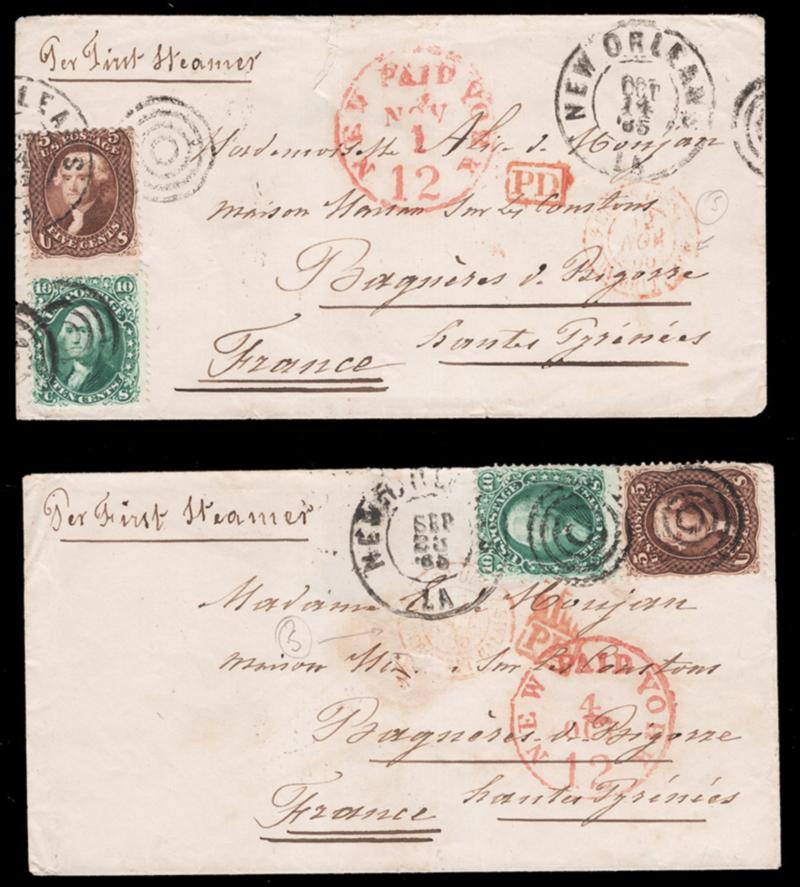 Per First Steamer
NEW YORK
PAID
NOV
1
12
NEW ORLEANS
OCT
14
'65
LA
5 5
U.S. POSTAGE
FIVE CENTS
U S
Mademoiselle de Moujan
PD
maison Sur les Coustous
Bagnères de Bigorre
hautes Pyrénées
France
5
10 10
U.S. POSTAGE
TEN CENTS
U S
Per First Steamer
NEW
SEP
'65
LA
10 10
U.S. POSTAGE
5 5
U S
Madame de Moujan
5
maison Sur les Coustous
NEW YORK
PAID
4
12
Bagnères de Bigorre
hautes Pyrénées
France